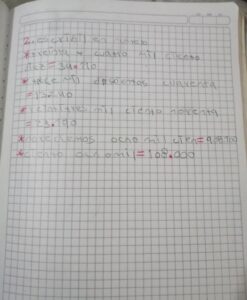 2. escribir en letra
*treinta y cuatro mil ciento
diez = 34.110
*trece mil doscientos cuarenta
= 13.240
*veintitres mil ciento noventa
= 23.190
*novecientos ocho mil cien = 908.100
*ciento ocho mil = 108.000